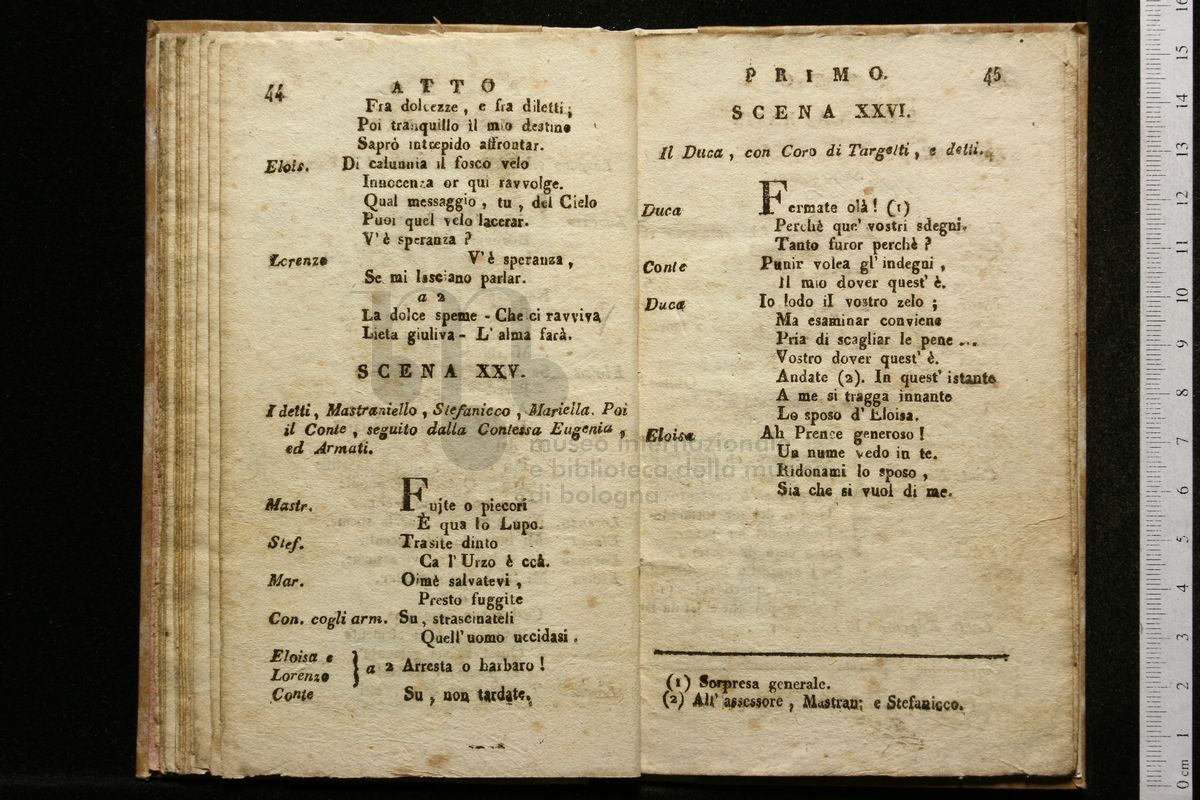 44
ATTO
Fra dolcezze, e fra diletti;
Poi tranquillo il mio destino
Saprò intrepido affrontar.
Elois. Di calunnia il fosco velo
Innocenza or qui ravvolge.
Qual messaggio, tu, del Cielo
Puoi quel velo lacerar.
V'è speranza?
Lorenzo V'è speranza,
Se mi lasciano parlar.
a 2
La dolce speme - Che ci ravviva
Lieta giuliva - L'alma farà.
SCENA XXV.
I detti, Mastraniello, Stefanicco, Mariella. Poi
il Conte, seguito dalla Contessa Eugenia,
ed Armati.
Mastr. Fujte o piecori
È qua lo Lupo.
Stef. Trasite dinto
Ca l'Urzo è ccà.
Mar. Oimè salvatevi,
Presto fuggite
Con. cogli arm. Su, strascinateli
Quell'uomo uccidasi.
Eloisa e
Lorenzo } a 2 Arresta o barbaro!
Conte Su, non tardate.
PRIMO. 45
SCENA XXVI.
Il Duca, con Coro di Targetti, e detti.
Duca Fermate olà! (1)
Perchè que' vostri sdegni,
Tanto furor perchè?
Conte Punir volea gl'indegni,
Il mio dover quest'è.
Duca Io lodo il vostro zelo;
Ma esaminar conviene
Pria di scagliar le pene ...
Vostro dover quest'è.
Andate (2). In quest'istante
A me si tragga innante
Lo sposo d'Eloisa.
Eloisa Ah Prence generoso!
Un nume vedo in te.
Ridonami lo sposo,
Sia che si vuol di me.
(1) Sorpresa generale.
(2) All'assessore, Mastran: e Stefanicco.
museo internazionale
e biblioteca della mu
di bologna
0 cm 1 2 3 4 5 6 7 8 9 10 11 12 13 14 15 16